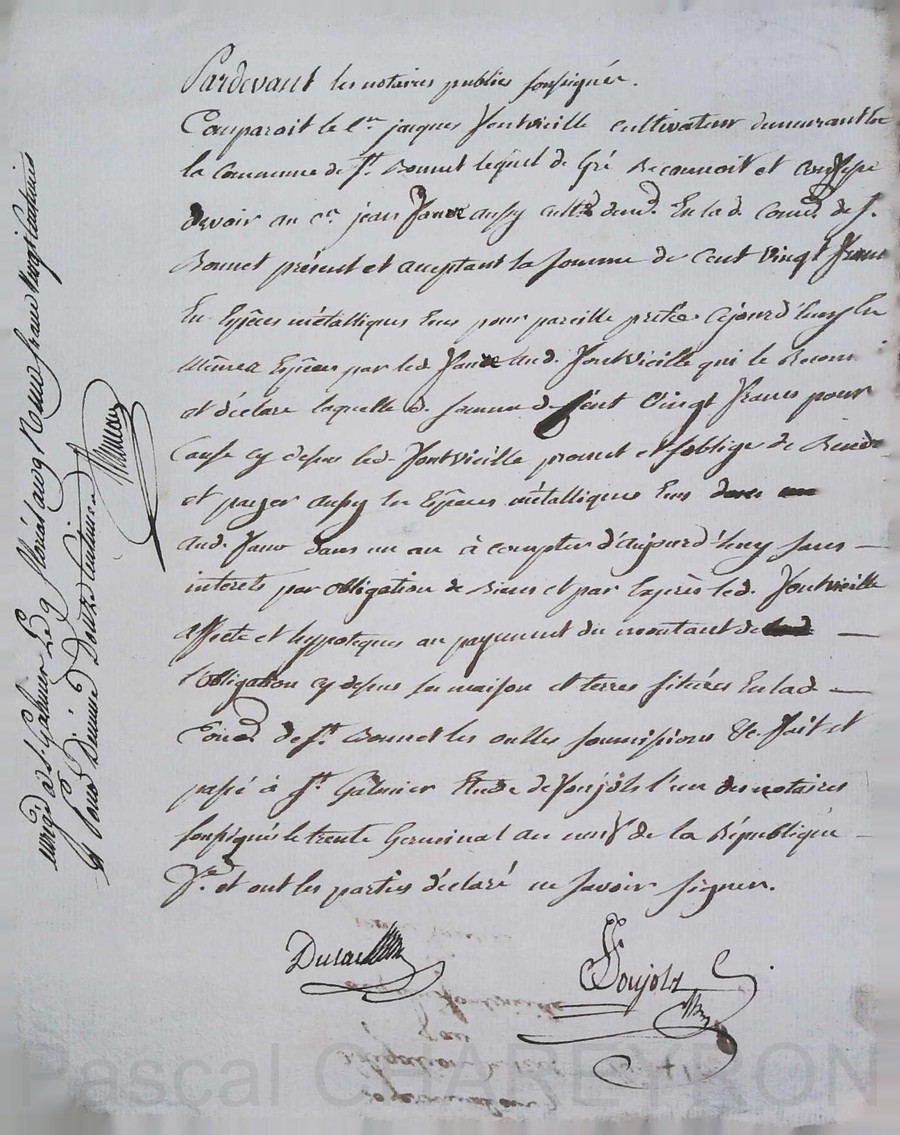 Pardevant les notaires publics soussignés.
Comparoit le C.en jaques fontvieille cultivateur demeurant en
la commune de St. Bonnet lequel de Gré Reconnoit et confesse
devoir au C.en jean faure aussy cult.r dem.t En lad. Com.e de St.
Bonnet présent et aceptant la somme de Cent vingt francs
En Espèces métalliques Eus pour pareille pretée Ajourd'huy En
mêmes Espèces par led. faure aud. fontvieille qui le Reconnoit
et déclare laquelle d. somme de Cent Vingt francs pour
Cause cy dessus led. fontvieille promet et s'oblige de Rendre
et payer aussy En Espèces métalliques
aud. faure dans un an à compter d'aujourd'huy sans
interets par obligation de Biens et par Exprès led. fontvieille
affecte et hypoteques au payement du montant de
l'obligation cy dessus ses maison et terres situées En lad.
Com.e de St. Bonnet les soumissions &c. fait et
passé à St. Galmier Etude de Soujols l'un des notaires
soussignés le trente Germinal an neuf de la République
f.se et ont les parties déclaré ne savoir signer.
Soujols
Enrg.é à St. Galmier Le 9 floréal an 9 Reçu franc vingt centimes